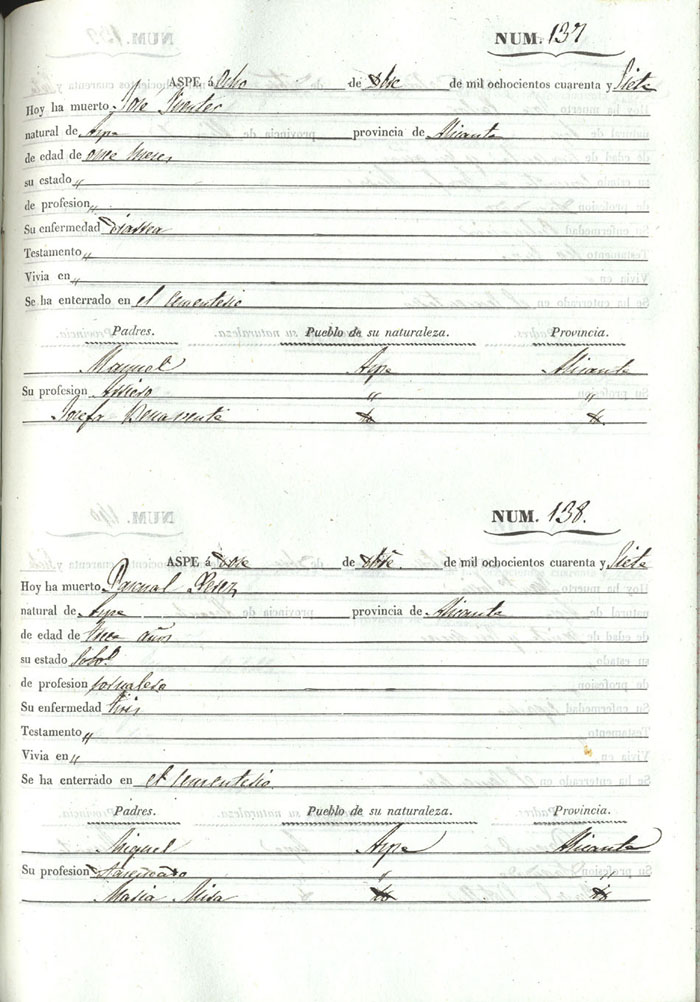 NUM. 137
ASPE á Ocho de Dbre de mil ochocientos cuarenta y Siete
Hoy ha muerto Jose
natural de Aspe provincia de Alicante
de edad de once meses
su estado "
de profesion "
Su enfermedad Diarrea
Testamento "
Vivia en "
Se ha enterrado en el Cementerio
Padres. Pueblo de su naturaleza. Provincia.
Manuel Aspe Alicante
Su profesion Arriero " "
Josefa Benavente
NUM. 138.
ASPE á Doce de Dbre de mil ochocientos cuarenta y Siete
Hoy ha muerto Pascual Perez
natural de Aspe provincia de Alicante
de edad de años
su estado
de profesion jornalero
Su enfermedad Tisis
Testamento "
Vivia en "
Se ha enterrado en el Cementerio.
Padres. Pueblo de su naturaleza. Provincia.
Miguel Aspe Alicante
Su profesion " "
Maria Mira